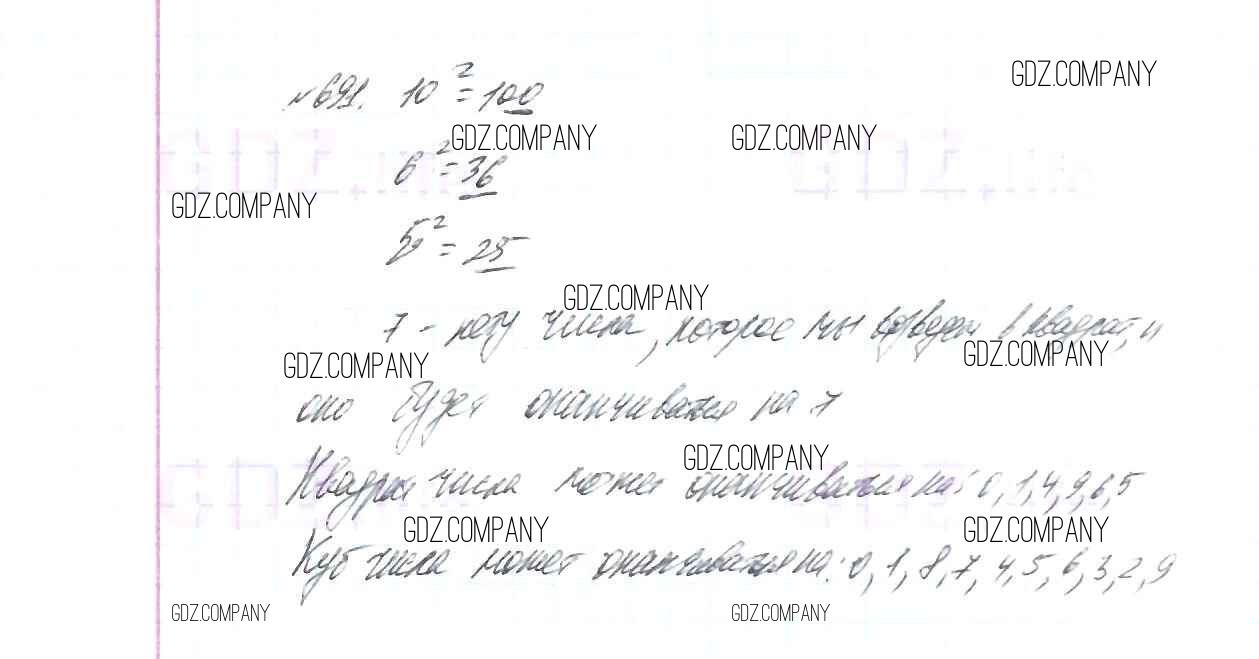 №691. 10² = 100
6² = 36
5² = 25
7 - нету числа, которое мы возведем в квадрат, и
оно будет оканчиваться на 7
Квадрат числа может оканчиваться на: 0, 1, 4, 9, 6, 5
Куб числа может оканчиваться на: 0, 1, 8, 7, 4, 5, 6, 3, 2, 9
GDZ.COMPANY
GDZ.COMPANY
GDZ.COMPANY
GDZ.COMPANY
GDZ.COMPANY
GDZ.COMPANY
GDZ.COMPANY
GDZ.COMPANY
GDZ.COMPANY
GDZ.COMPANY
GDZ.COMPANY
GDZ.COMPANY